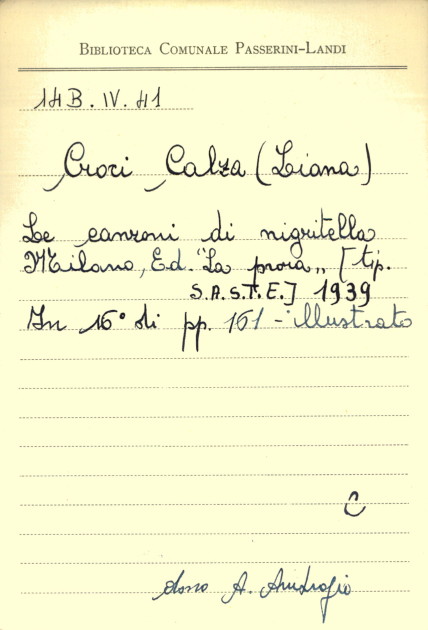 BIBLIOTECA COMUNALE PASSERINI-LANDI
14B. IV. 41
Croci Calza (Liana)
Le canzoni di nigritella
Milano, Ed. "La prora„ [tip.
S.A.S.T.E.] 1939
In 16° di pp. 161 - illustrato
C
dono A. Ambrogio